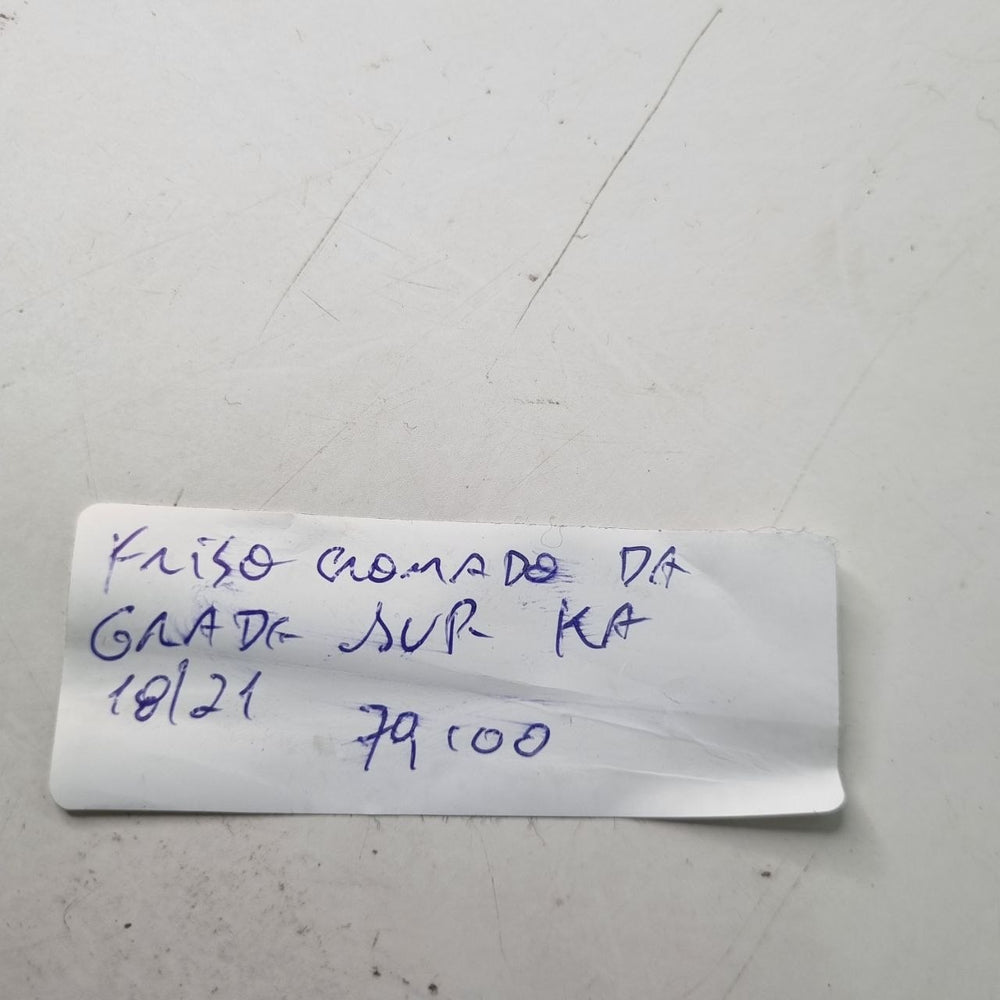 FRISO CROMADO DA
GRADE SUP KA
18/21
79,00